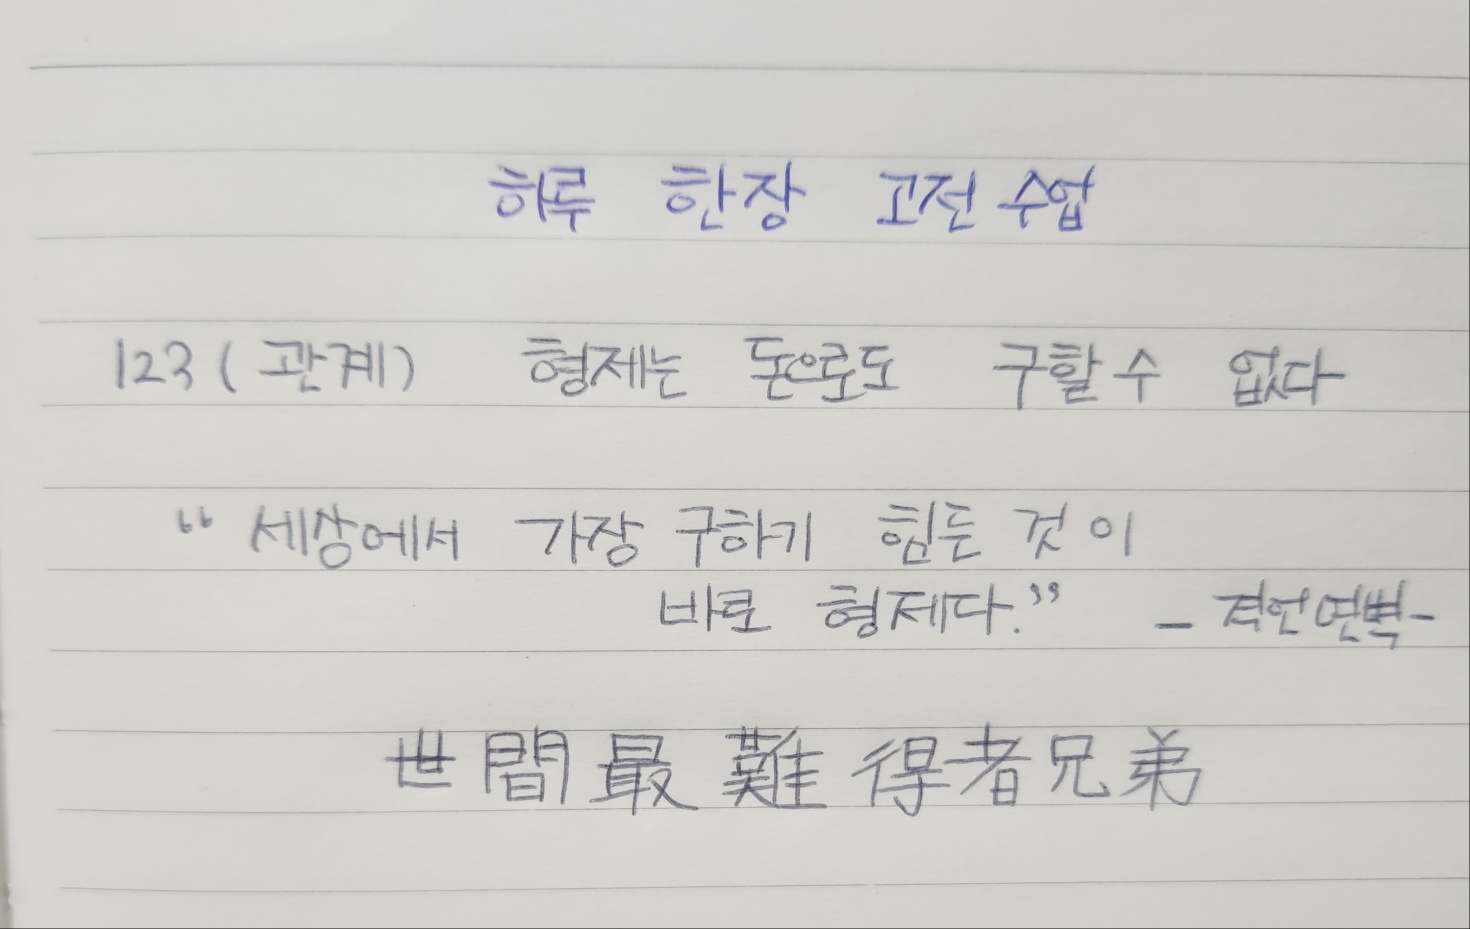 하루 한장 고전 수업
123 (관계) 형제는 돈으로도 구할 수 없다
“세상에서 가장 구하기 힘든 것이
바로 형제다.” - 격언연벽-
世間最難得者兄弟